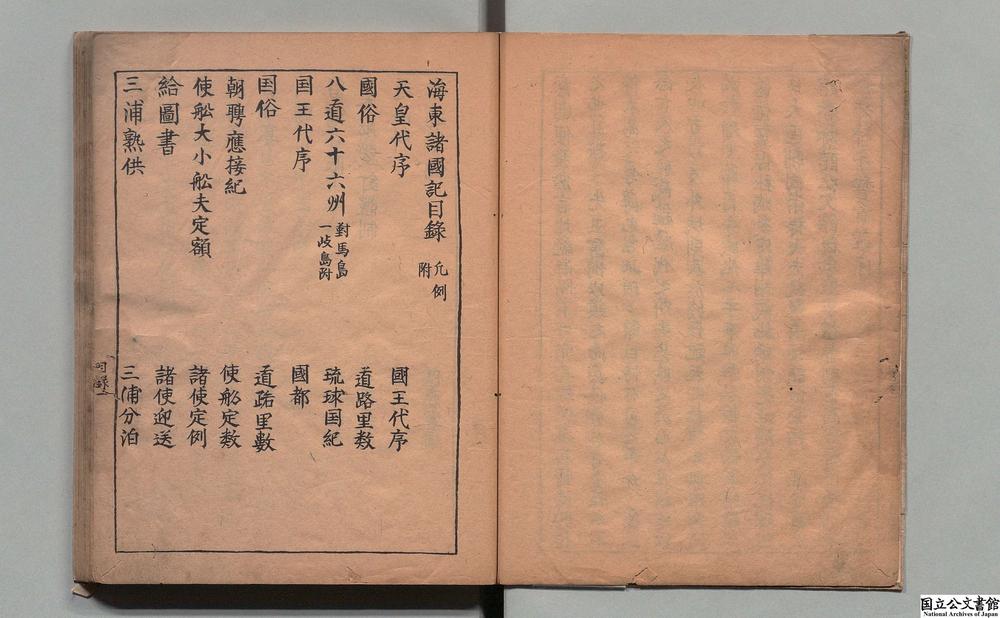 海東諸國記目錄 凡例附
天皇代序 國王代序
國俗 道路里数
八道六十六州 對馬島一岐島附 琉球国紀
国王代序 國都
国俗 道路里數
朝聘應接紀 使舩定数
使舩大小舩夫定額 諸使定例
給圖書 諸使迎送
三浦熟供 三浦分泊
目錄
国立公文書館
National Archives of Japan